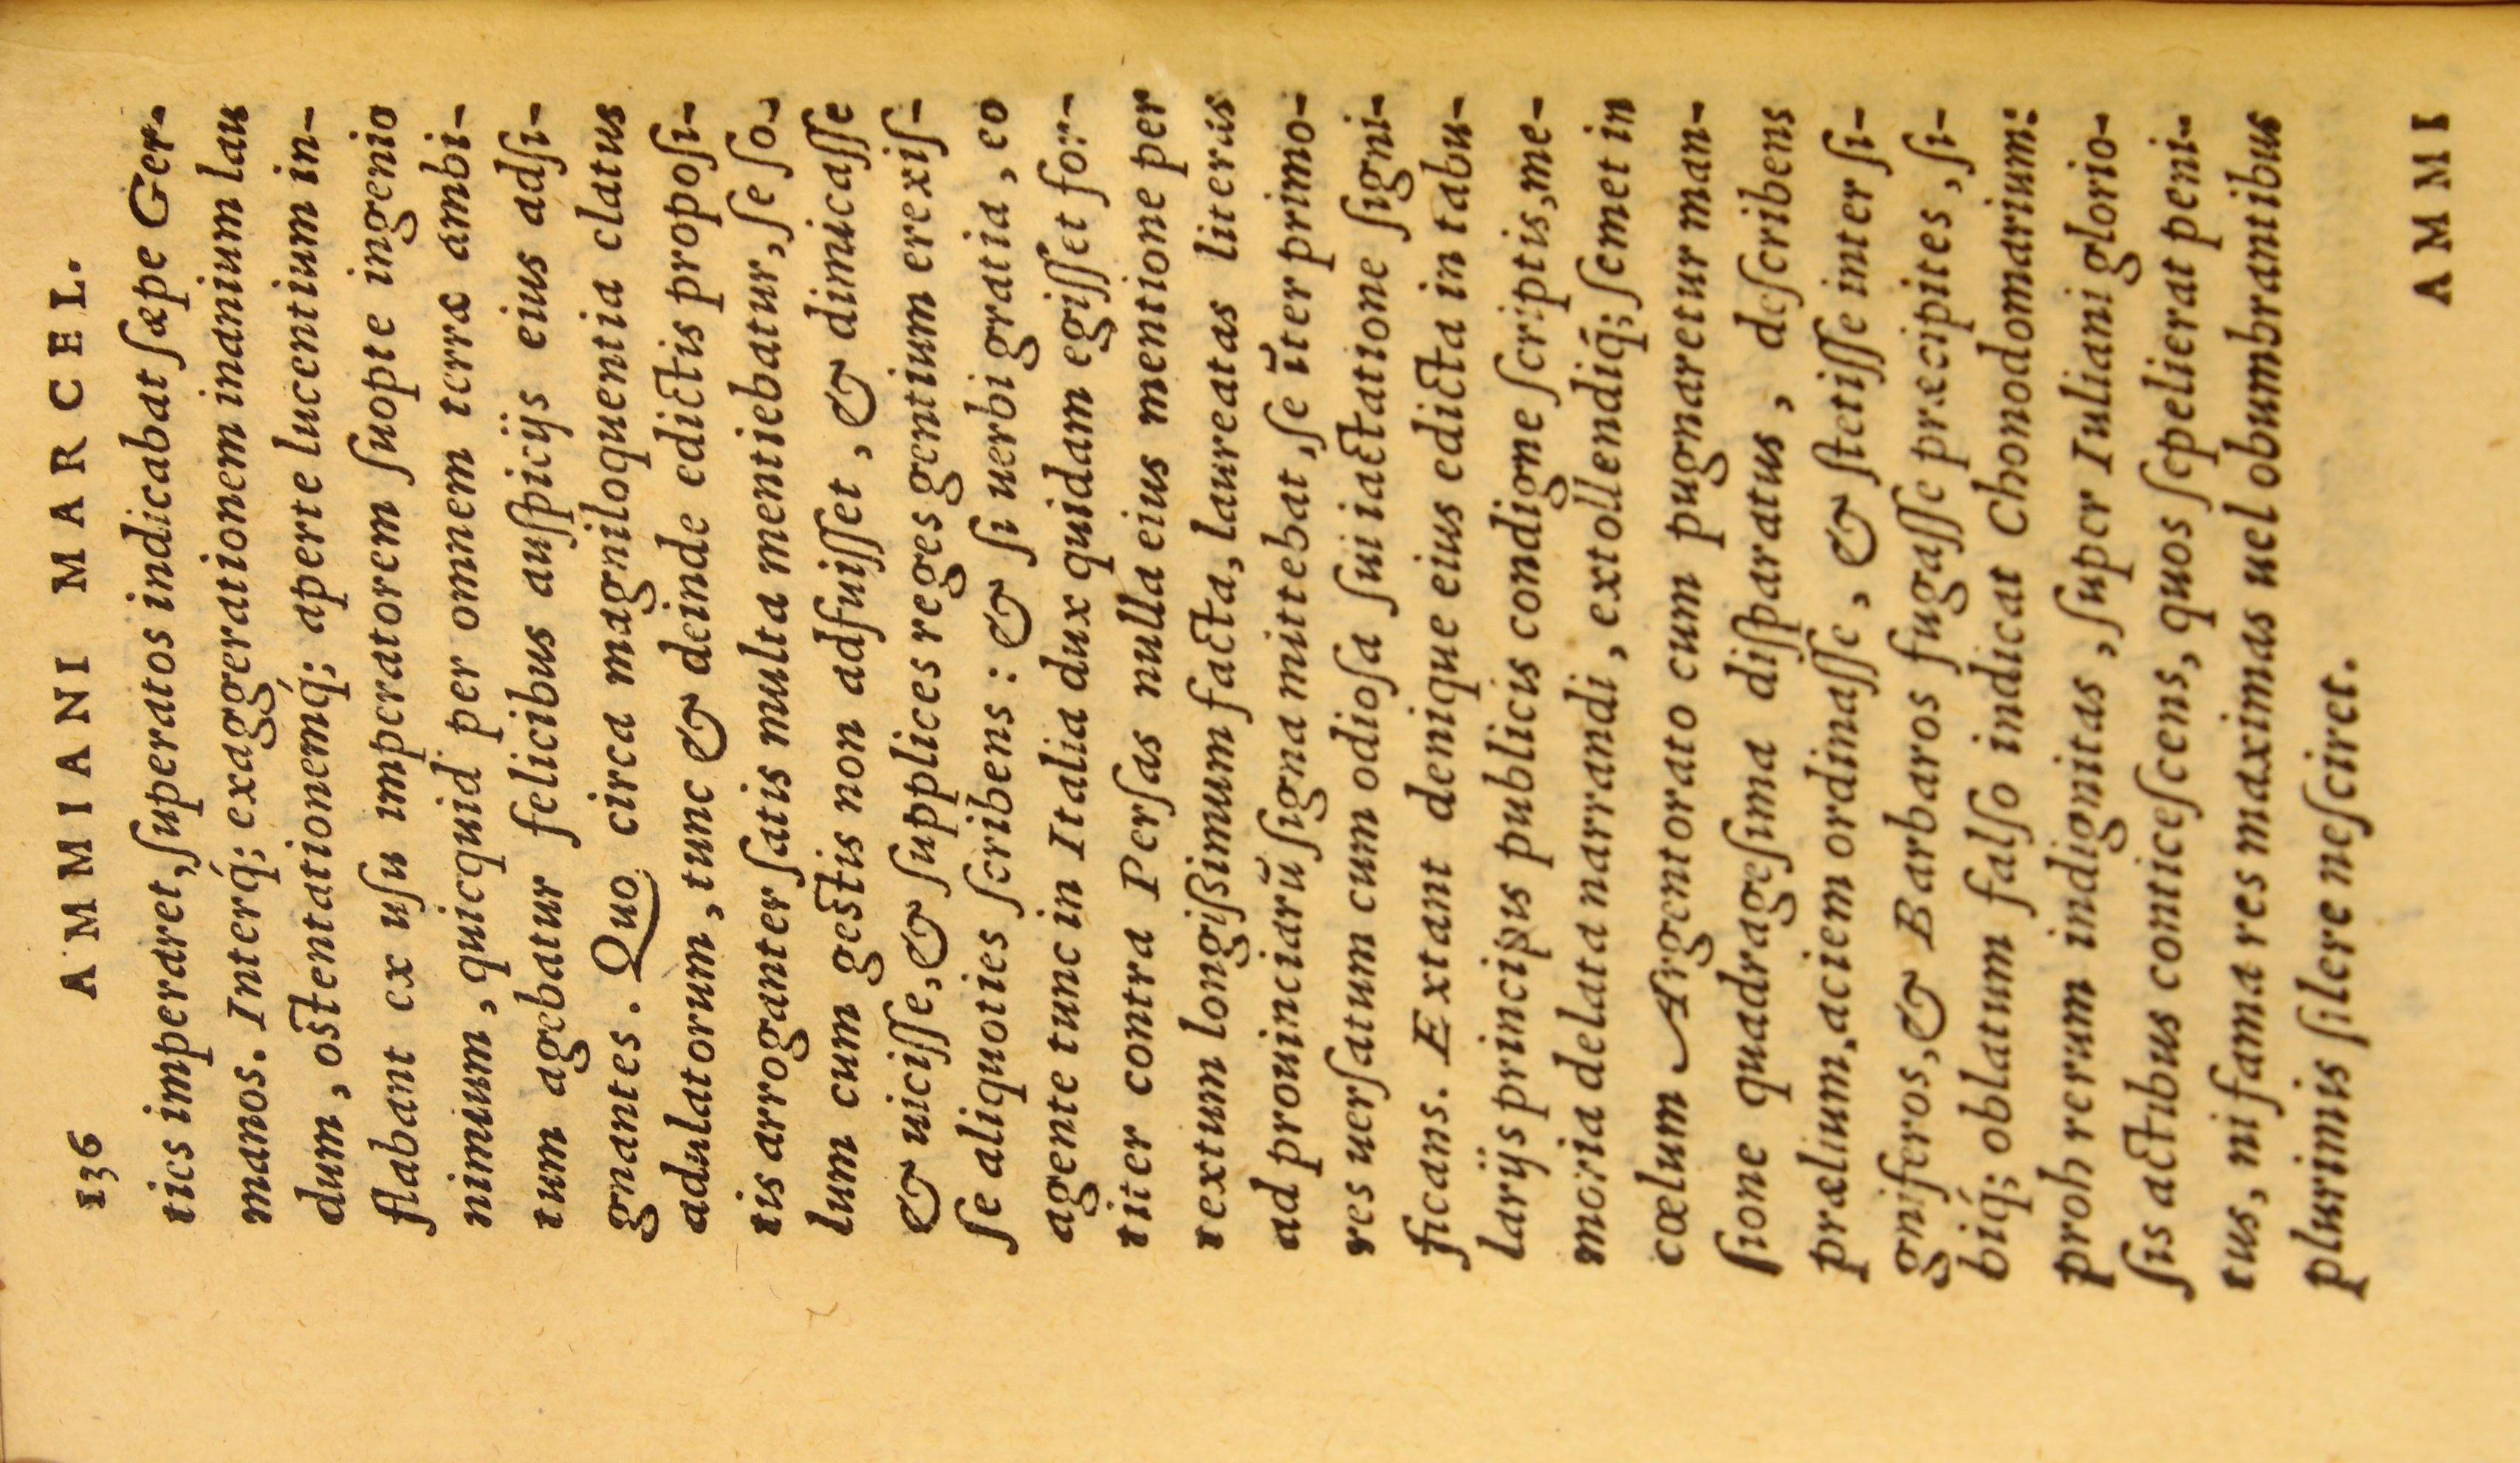 136 AMMIANI MARCEL.
tics imperaret, ſuperatos indicabat ſæpe Ger-
manos. Interq́; exaggerationem inanium lau
dum, oſtentationemq́; aperte lucentium in-
flabant ex uſu imperatorem ſuopte ingenio
nimium, quicquid per omnem terræ ambi-
tum agebatur felicibus auſpicijs eius adſi-
gnantes. Quo circa magniloquentia elatus
adulatorum, tunc & deinde edictis propoſi-
tis arroganter ſatis multa mentiebatur, ſe ſo-
lum cum geſtis non adfuiſſet, & dimicaſſe
& uiciſſe, & ſupplices reges gentium erexiſ-
ſe aliquoties ſcribens: & ſi uerbi gratia, eo
agente tunc in Italia dux quidam egiſſet for-
titer contra Perſas nulla eius mentione per
textum longißimum facta, laureatas literas
ad prouinciarũ ſigna mittebat, ſe ĩter primo-
res uerſatum cum odioſa ſui iactatione ſigni-
ficans. Extant denique eius edicta in tabu-
larijs principis publicis condigne ſcriptis, me-
moria delata narrandi, extollendiq́; ſemet in
cœlum Argentorato cum pugnaretur man-
ſione quadrageſima diſparatus, deſcribens
prælium, aciem ordinaſſe, & ſtetiſſe inter ſi-
gniferos, & Barbaros fugaſſe præcipites, ſi-
biq́; oblatum falſo indicat Chonodomarium:
proh rerum indignitas, ſuper Iuliani glorio-
ſis actibus conticeſcens, quos ſepelierat peni-
tus, ni fama res maximas uel obumbrantibus
plurimis ſilere neſciret.
AMMI